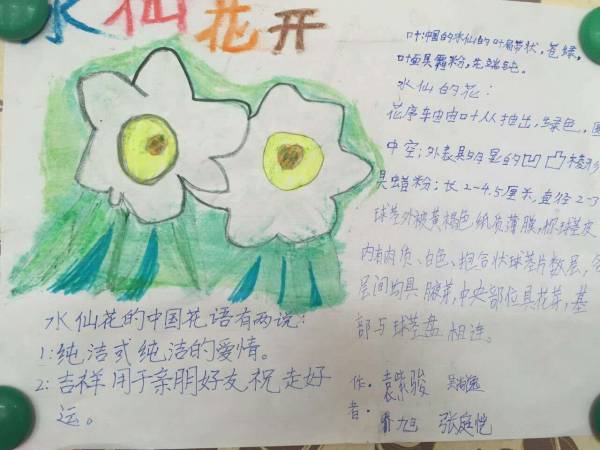 水仙花开
叶:中国的水仙的叶扁带状,苍绿,
叶面具霜粉,先端钝。
水仙的花:
花序轴由叶丛抽出,绿色,圆
中空;外表具明显的凹凸棱形,
具蜡粉;长2-4.5厘米,直径2-3
球茎外被黄褐色纸质薄膜,称球茎皮
内有肉质、白色、抱合状球茎片数层,各
层间均具腋芽,中央部位具花芽,基
部与球茎盘相连。
水仙花的中国花语有两说:
1:纯洁式纯洁的爱情。
2:吉祥用于亲朋好友祝走好
运。
作者:袁紫骏
乔旭 张庭恺